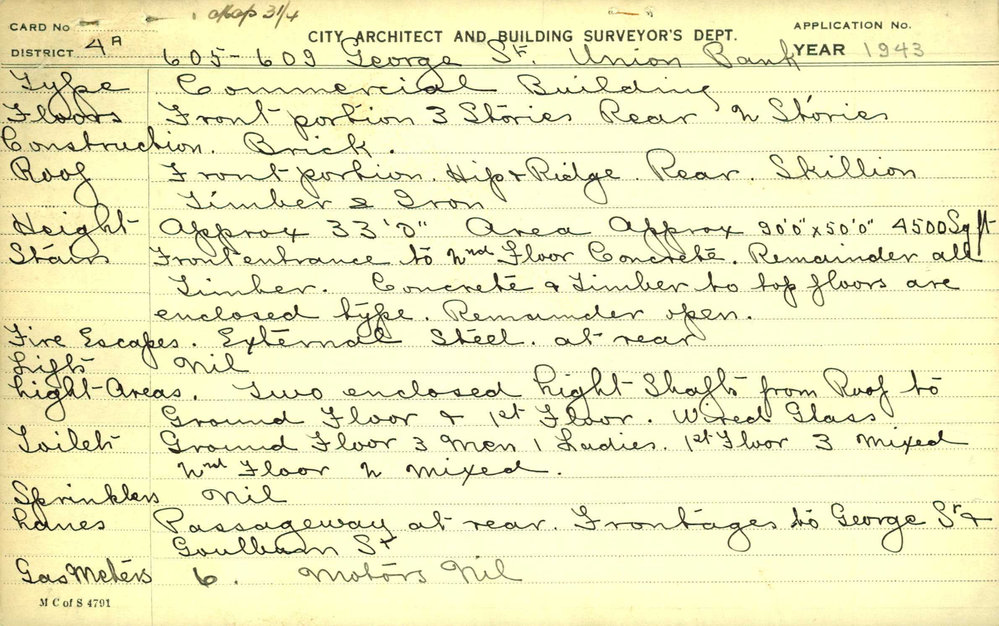 Map 31/4
CARD No
CITY ARCHITECT AND BUILDING SURVEYOR'S DEPT.
APPLICATION No.
DISTRICT 4A
YEAR 1943
605-609 George St. Union Bank
Type Commercial Building
Floors Front portion 3 Stories Rear 2 Stories
Construction. Brick.
Roof Front portion. Hip & Ridge. Rear. Skillion
Timber & Iron
Height Approx 33'0" Area Approx 90'0" x 50'0" 4500 Sq ft
Stairs Front entrance to 2nd Floor Concrete. Remainder all
Timber. Concrete & Timber to top floors are
enclosed type. Remainder open.
Fire Escapes. External Steel. at rear
Lifts Nil
Light Areas. Two enclosed Light Shafts from Roof to
Ground Floor & 1st Floor. Wired Glass
Toilets Ground Floor 3 Men 1 Ladies. 1st Floor 3 mixed
2nd Floor 2 mixed.
Sprinklers Nil
Lanes Passageway at rear. Frontages to George St &
Goulburn St
Gas Meters 6. Motors Nil
M C of S 4791